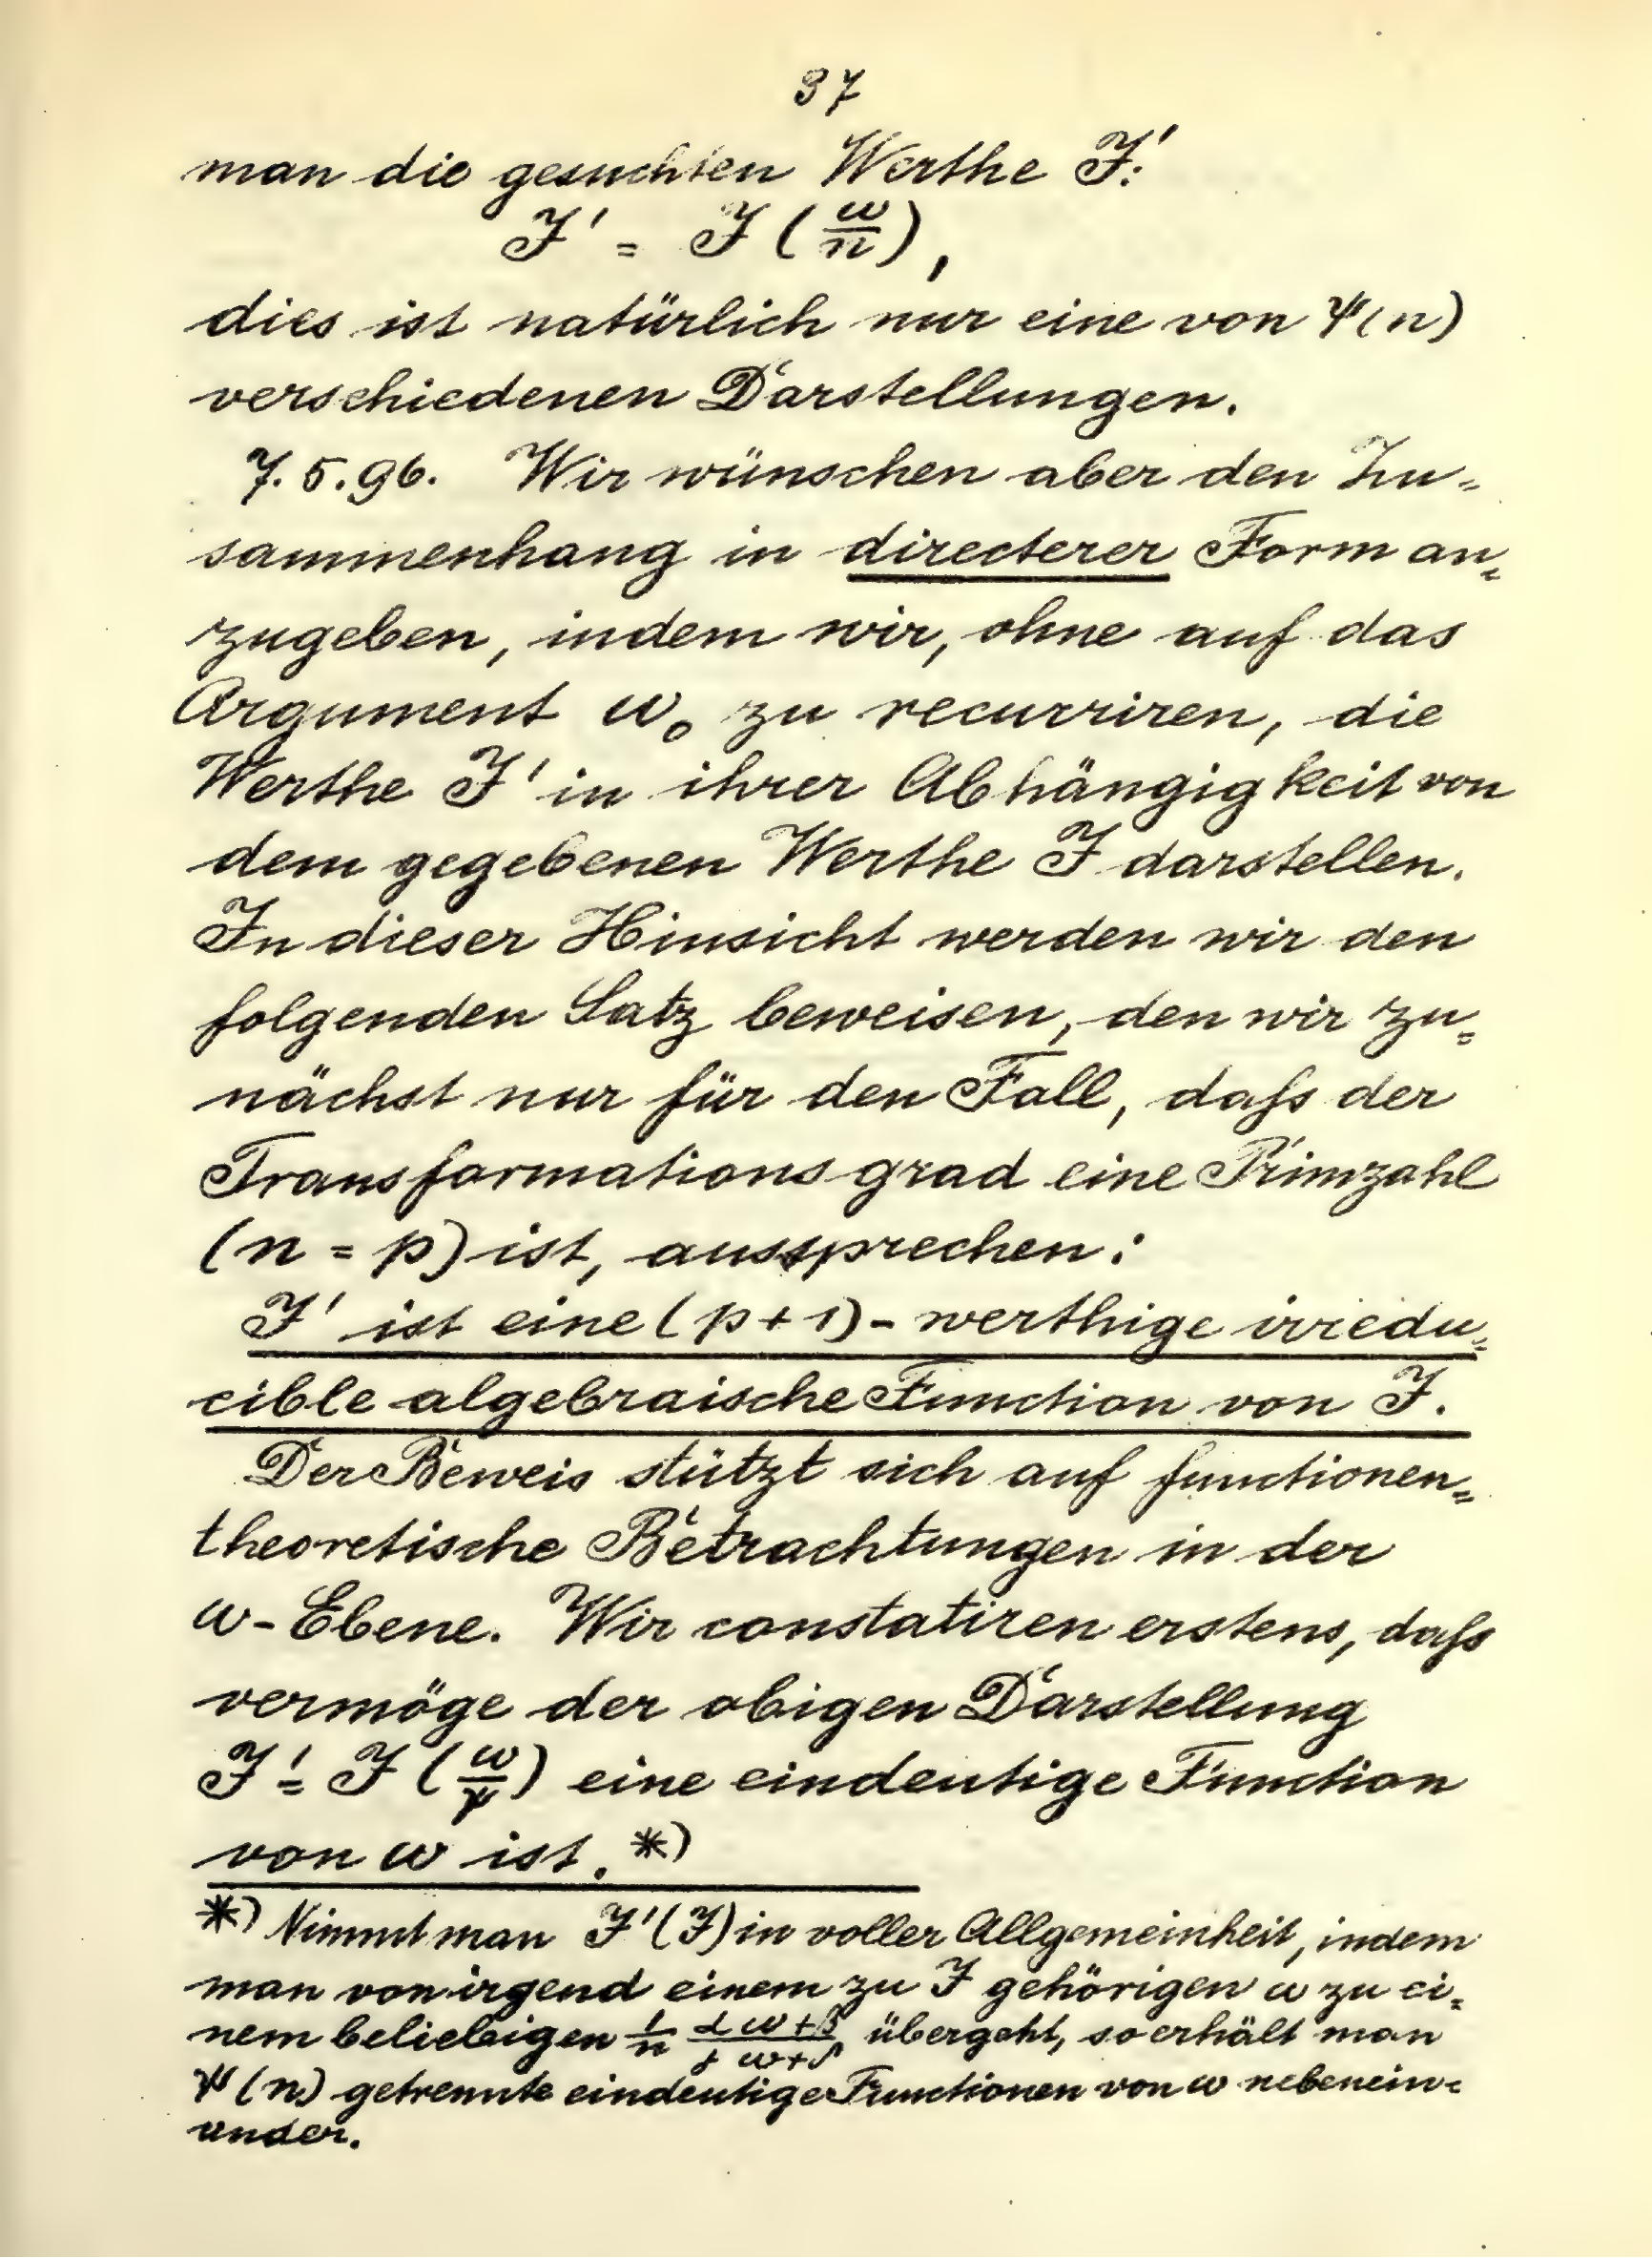 37
man die gesuchten Werthe J':
J' = J (ω/n),
dies ist natürlich nur eine von Ψ(n)
verschiedenen Darstellungen.
7.5.96. Wir wünschen aber den Zu-
sammenhang in directerer Form an-
zugeben, indem wir, ohne auf das
Argument ω₀ zu recurriren, die
Werthe J' in ihrer Abhängigkeit von
dem gegebenen Werthe J darstellen.
In dieser Hinsicht werden wir den
folgenden Satz beweisen, den wir zu-
nächst nur für den Fall, daſs der
Transformationsgrad eine Primzahl
(n = p) ist, aussprechen:
J' ist eine (p+1)-werthige irredu-
cible algebraische Function von J.
Der Beweis stützt sich auf functionen-
theoretische Betrachtungen in der
ω-Ebene. Wir constatiren erstens, daſs
vermöge der obigen Darstellung
J' = J (ω/p) eine eindeutige Function
von ω ist. *)
*) Nimmt man J'(J) in voller Allgemeinheit, indem
man von irgend einem zu J gehörigen ω zu ei-
nem beliebigen 1/n (αω+β)/(γω+δ) übergeht, so erhält man
Ψ(n) getrennte eindeutige Functionen von ω nebenein-
ander.